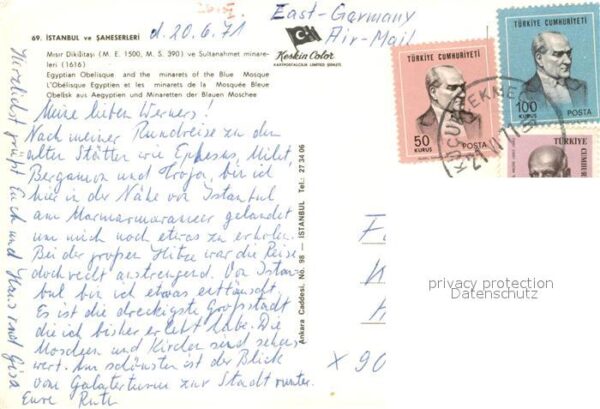 69. İSTANBUL ve ŞAHESERLERİ
d. 20.6.71
Mısır Dikilitaşı (M. E. 1500, M. S. 390) ve Sultanahmet minare-
leri (1616)
Egyptian Obelisque and the minarets of the Blue Mosque
L'Obélisque Egyptien et les minarets de la Mosquée Bleue
Obelisk aus Aegyptien und Minaretten der Blauen Moschee
Keskin Color
KARTPOSTALCILIK LIMITED ŞİRKETİ
East-Germany
Air-Mail
Meine lieben Werners!
Nach meiner Rundreise zu den
alten Stätten wie Ephesus, Milet,
Bergamon und Troja, bin ich
hier in der Nähe von Istanbul
am Marmarameer gelandet
um mich noch etwas zu erholen.
Bei der großen Hitze war die Reise
doch recht anstrengend. Von Istan-
bul bin ich etwas enttäuscht.
Es ist die dreckigste Großstadt
die ich bisher erlebt habe. Die
Moscheen und Kirchen sind sehens-
wert. Am schönsten ist der Blick
vom Galataturm zur Stadt runter.
Eure Ruth
Herzlichst grüßt Euch und Hans und Gisa
Ankara Caddesi, No. 98 — İSTANBUL Tel.: 27 34 06
TÜRKİYE CUMHURİYETİ
50
KURUŞ
POSTA
TÜRKİYE CUMHURİYETİ
100
KURUŞ
POSTA
TÜRKİYE CUMHUR
KÜÇÜKÇEKMECE
21
X 90
privacy protection
Datenschutz